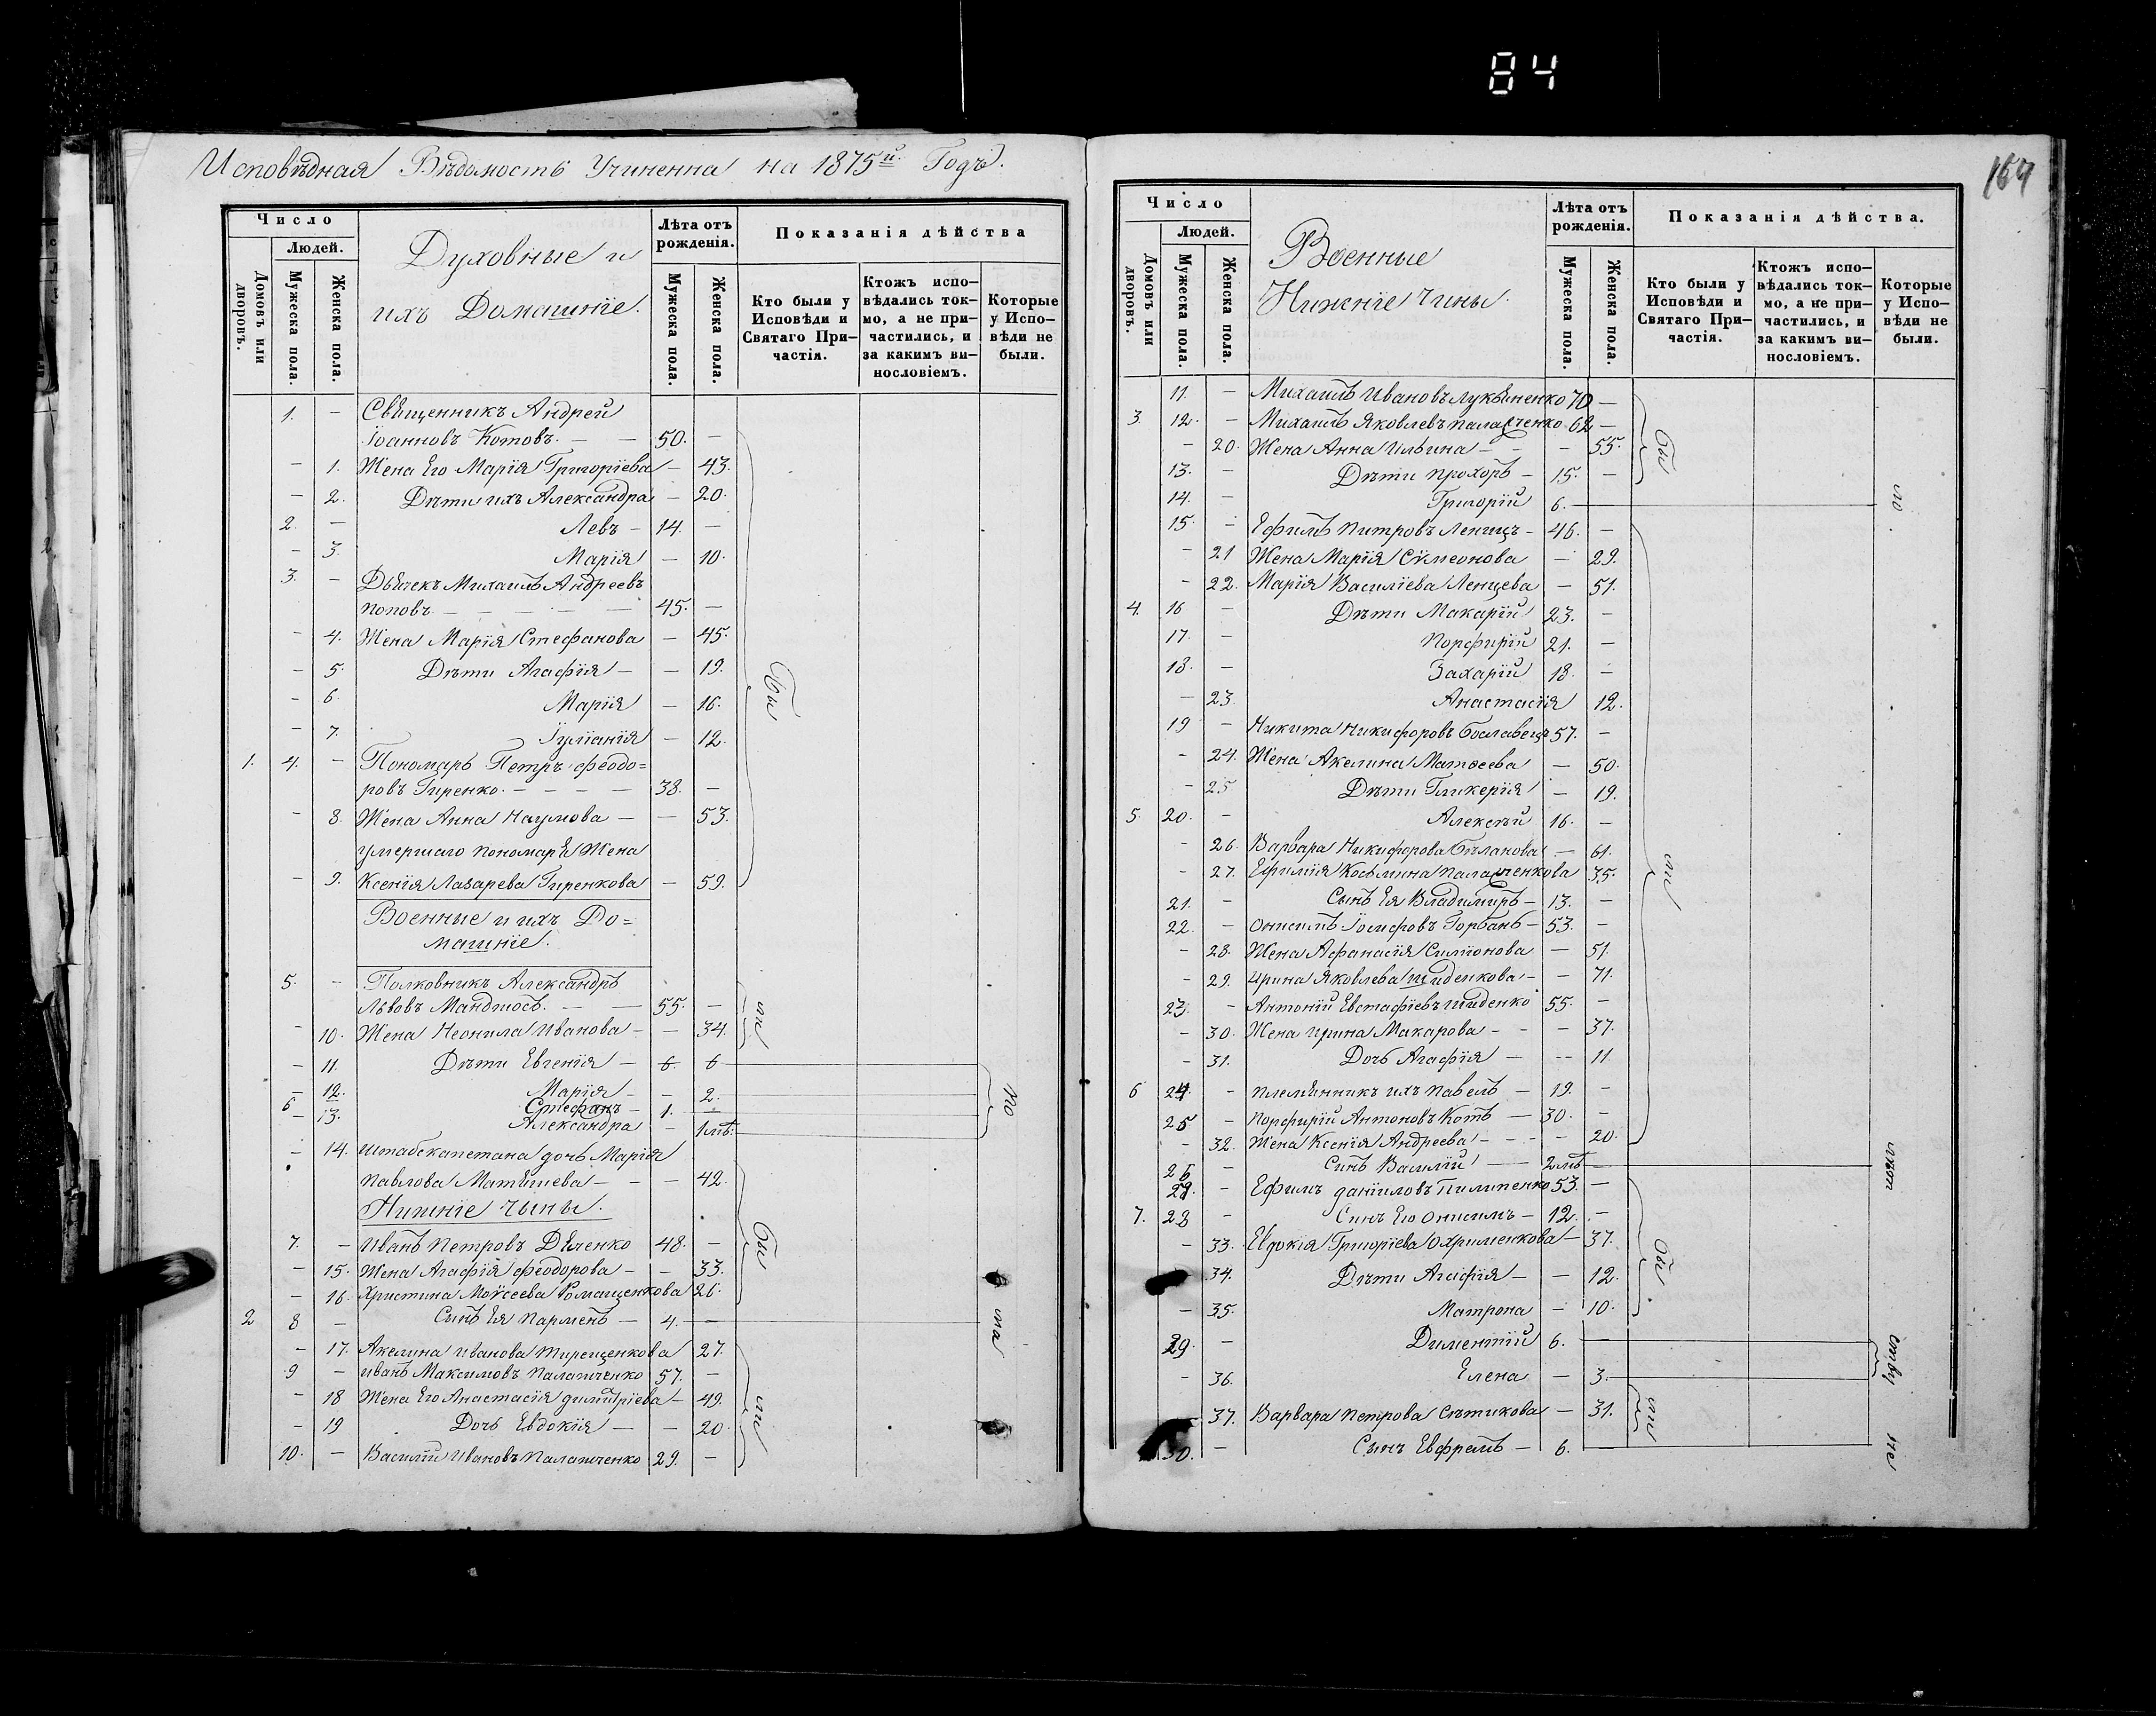 84
Исповѣдная Вѣдомость Учиненна на 1875й Годъ.
Число
Людей.
Домовъ или дворовъ.
Мужеска пола.
Женска пола.
Духовные и
ихъ Домашніе.
Лѣта отъ рожденія.
Мужеска пола.
Женска пола.
Показанія дѣйства
Кто были у Исповѣди и Святаго При-частія.
Ктожъ испо-вѣдались ток-мо, а не при-частились, и за какимъ ви-нословіемъ.
Которые у Испо-вѣди не были.
1. — Священникъ Андрей
Іоанновъ Котовъ. — — 50. —
— 1. Жена Его Марія Григоріева — 43.
— 2. Дѣти ихъ Александра — 20.
2. — Левъ — 14. —
— 3. Марія — 10.
3. — Дьячекъ Михаилъ Андреевъ
Поповъ — — — — — 45. —
— 4. Жена Марія Стефанова — 45.
— 5. Дѣти Агафія — — 19.
— 6. Марія — 16.
— 7. Іуліанія — 12.
1. 4. — Пономарь Петръ Феодо=
ровъ Гиренко. — — — — 38. —
— 8. Жена Анна Наумова — — 53.
умершаго пономаря Жена
— 9. Ксенія Лазарева Гиренкова — 59.
Военные и ихъ До=
машніе.
5. — Полковникъ Александръ
Львовъ — — 55. —
— 10. Жена Неонила Иванова — — 34.
— 11. Дѣти Евгенія — 6. 6
— 12. Марія — — 2.
6 Стефанъ — 1. —
— 13. Александра — 1 мѣ.
— 14. Штабскапетана дочь Марія
Павлова — — — 42.
Нижніе чины.
7. — Иванъ Петровъ Дяченко 48. —
— 15. Жена Агафія Феодорова — — 33.
— 16. Христина Моѵсеева Ромащенкова 26.
2 8 — Сынъ Ея Парменъ — 4. —
— 17. Акелина Иванова Тирещенкова 27.
9 — Иванъ Максимовъ Палащченко 57. —
— 18 Жена Его Анастасія Димитріева — 49.
— 19 Дочь Евдокія — — 20.
10. — Василій Ивановъ Палащченко 29. —
164
Число
Людей.
Домовъ или дворовъ.
Мужеска пола.
Женска пола.
Военные
Нижніе чины.
Лѣта отъ рожденія.
Мужеска пола.
Женска пола.
Показанія дѣйства.
Кто были у Исповѣди и Святаго При-частія.
Ктожъ испо-вѣдались ток-мо, а не при-частились, и за какимъ ви-нословіемъ.
Которые у Испо-вѣди не были.
11. — Михаилъ Ивановъ Лукьяненко 70 —
3. 12. — Михаилъ Яковлевъ Палащенко 62 —
— 20. Жена Анна Ильина — — — 55.
13. — Дѣти Прохоръ — 15. —
14. — Григорій 6.
15. — Ефимъ Питровъ Ленецъ — 46. —
— 21 Жена Марія Сѵмеонова — 29.
— 22. Марія Василіева Ленцева — 51.
4. 16 — Дѣти Макарій 23. —
17. — Порфирій 21. —
18. — Захарій 18. —
— 23. Анастасія 12.
19 — Никита Никифоровъ 57. —
— 24. Жена Акелина Матѳеева — 50.
— 25 Дѣти Гликерія — 19.
5. 20. — Алексѣй 16. —
— 26. Варвара Никифорова Бѣланова — 61.
— 27. Ефимія Косьмина Палащенкова 35.
21. — Сынъ Ея Владимиръ — 13. —
22. — Онисимъ Іосифовъ Горбань — 53. —
— 28. Жена Афанасія Симіонова — 51.
— 29. Ирина Яковлева Шиденкова — — 71.
23. — Антоній Евстафіевъ Шиденко 55. —
— 30. Жена Ирина Макарова — — — 37.
— 31. Дочь Агафія — — 11.
6 24 — Племянникъ ихъ Павелъ — 19. —
25 — Порфирій Антоновъ Котъ — 30. —
— 32. Жена Ксенія Андреева — — — — 20.
26 — Синъ Василій — 2 мѣ —
27. — Ефимъ Даніиловъ Пилипенко 53. —
7. 28 — Синъ Его Онисимъ — 12. —
— 33. Евдокія Григоріева Охрименкова — 37.
34. Дѣти Агафія — — 12.
— 35. Матрона — 10.
29. — Диментій 6. —
— 36. Елена — 3.
37. Варвара Петрова Сѣтикова — 31.
30. — Сынъ Евфремъ — 6.